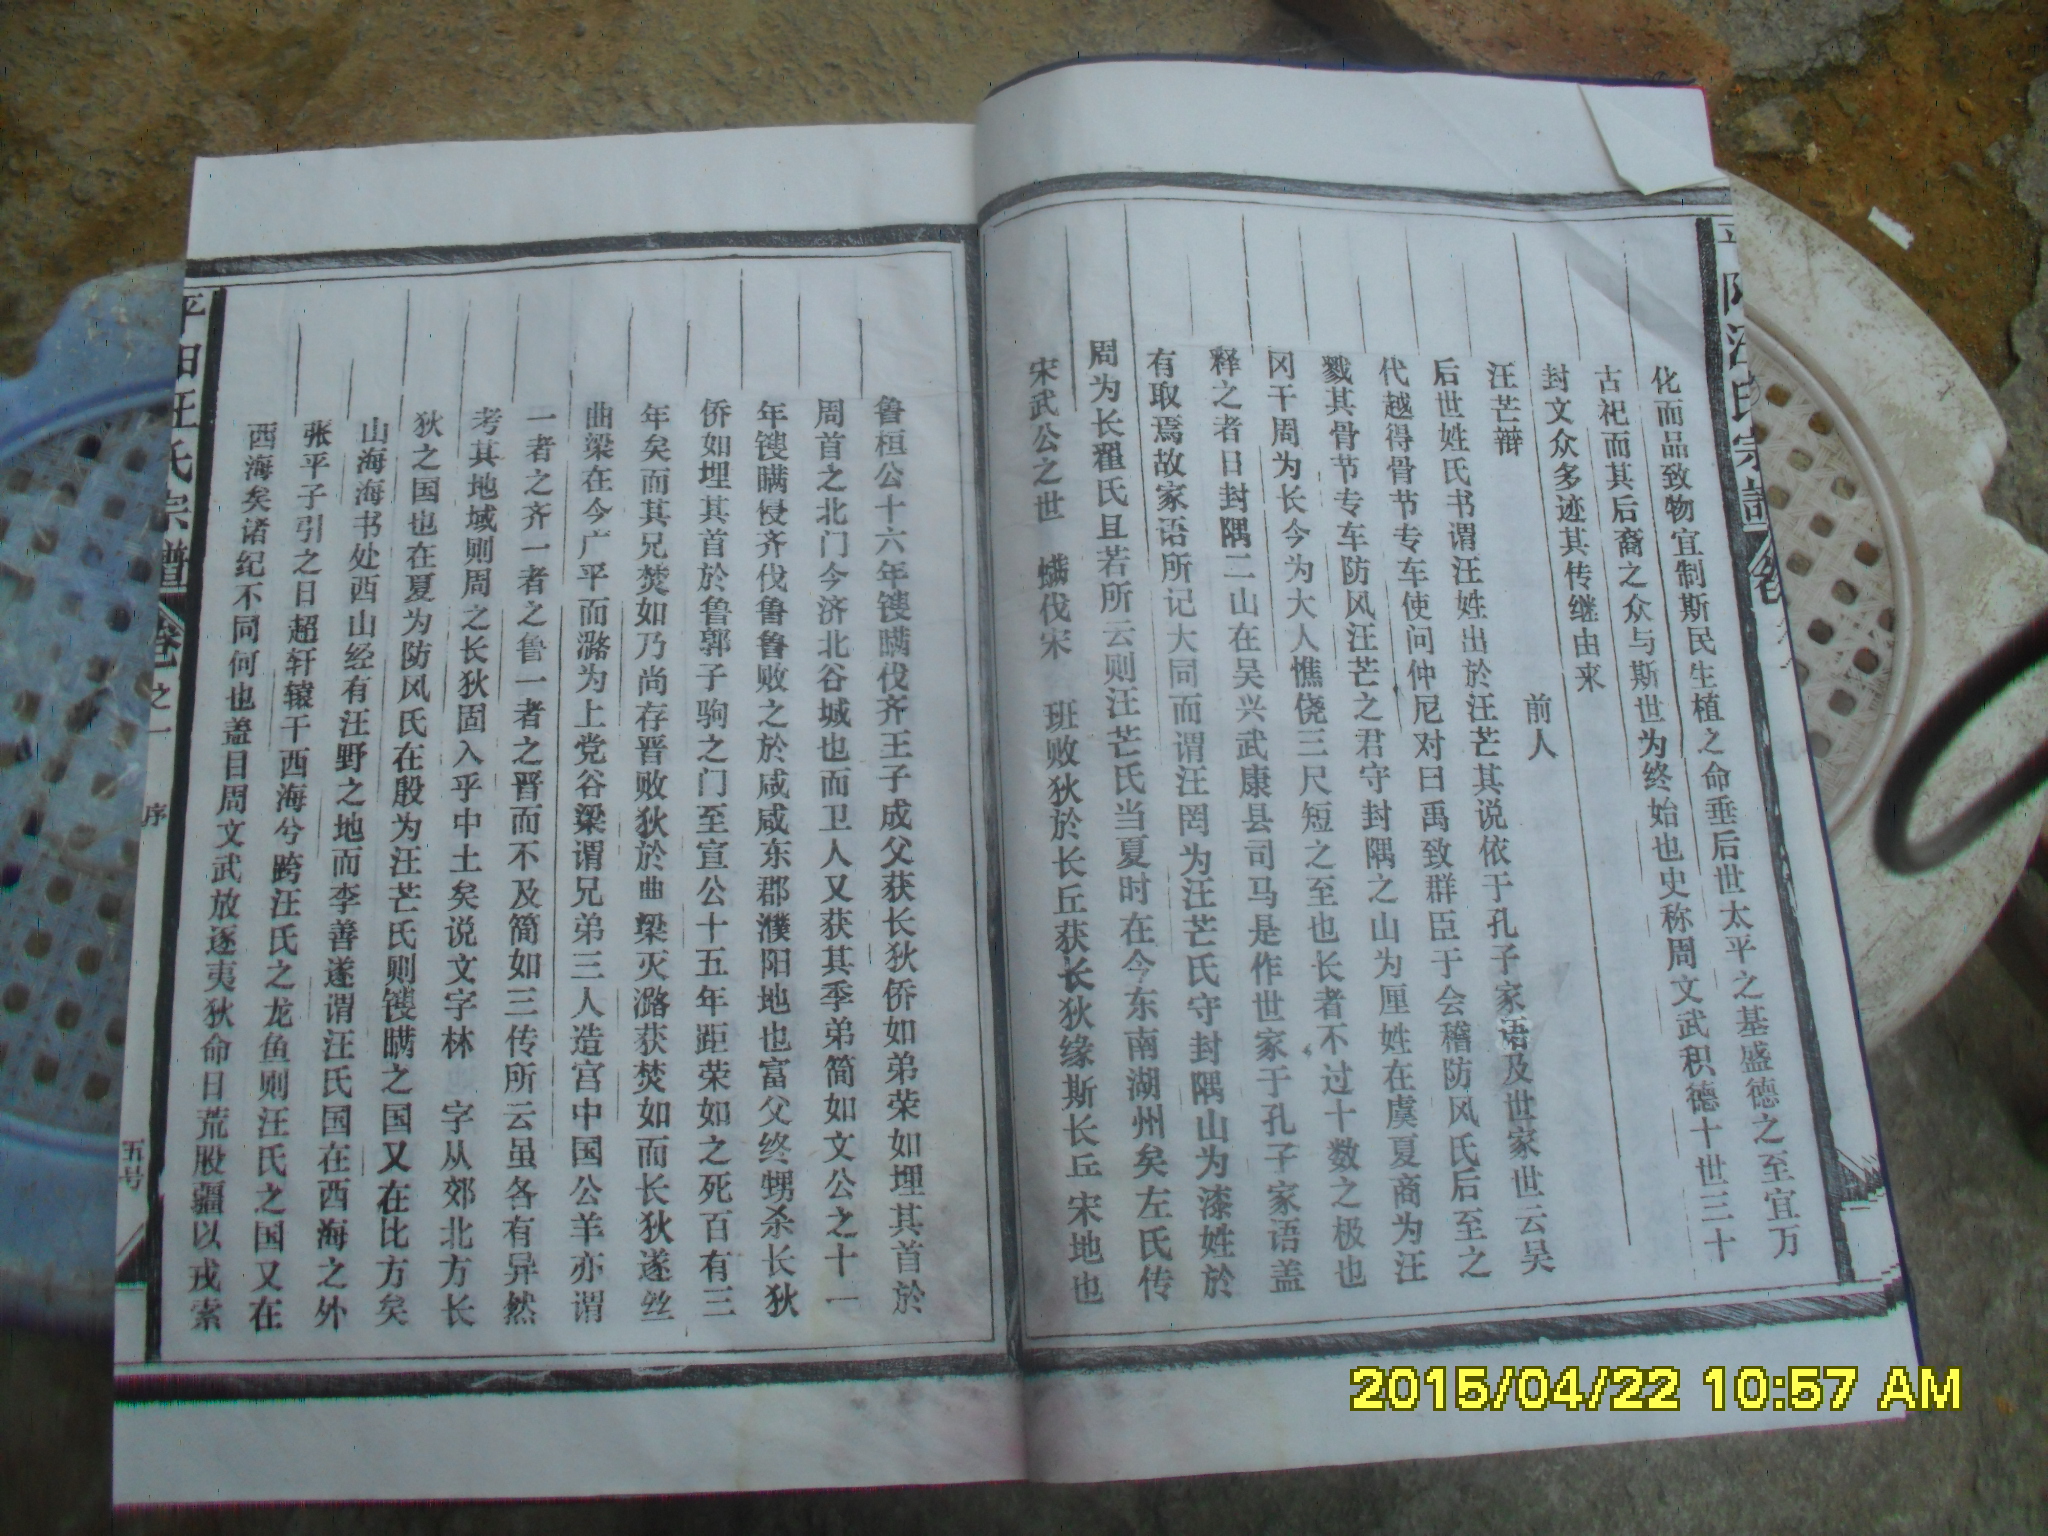 化而品致物宜制斯民生植之命垂后世太平之基盛德之至宜万
古祀而其后裔之众与斯世为终始也史称周文武积德十世三十
封文众多迹其传继由来
汪芒辩 前人
后世姓氏书谓汪姓出於汪芒其说依于孔子家语及世家世云吴
代越得骨节专车使问仲尼对曰禹致群臣于会稽防风氏后至之
戮其骨节专车防风汪芒之君守封隅之山为厘姓在虞夏商为汪
冈干周为长今为大人憔侥三尺短之至也长者不过十数之极也
释之者日封隅二山在吴兴武康县司马是作世家于孔子家语盖
有取焉故家语所记大同而谓汪罔为汪芒氏守封隅山为漆姓於
周为长翟氏且若所云则汪芒氏当夏时在今东南湖州矣左氏传
宋武公之世 瞒伐宋 班败狄於长丘获长狄缘斯长丘宋地也
鲁桓公十六年镂瞒伐齐王子成父获长狄侨如弟荣如埋其首於
周首之北门今济北谷城也而卫人又获其季弟简如文公之十一
年镂瞒侵齐伐鲁鲁败之於咸咸东郡濮阳地也富父终甥杀长狄
侨如埋其首於鲁郭子驹之门至宣公十五年距荣如之死百有三
年矣而其兄焚如乃尚存晋败狄於曲梁灭潞获焚如而长狄遂丝
曲梁在今广平而潞为上党谷梁谓兄弟三人造宫中国公羊亦谓
一者之齐一者之鲁一者之晋而不及简如三传所云虽各有异然
考其地域则周之长狄固入乎中土矣说文字林 字从郊北方长
狄之国也在夏为防风氏在殷为汪芒氏则镂瞒之国又在比方矣
山海海书处西山经有汪野之地而李善遂谓汪氏国在西海之外
张平子引之日超轩辕干西海兮跨汪氏之龙鱼则汪氏之国又在
西海矣诸纪不同何也盖目周文武放逐夷狄命日荒股疆以戎索
平阳汪氏宗谱 卷之一 序 五号
2015/04/22 10:57 AM